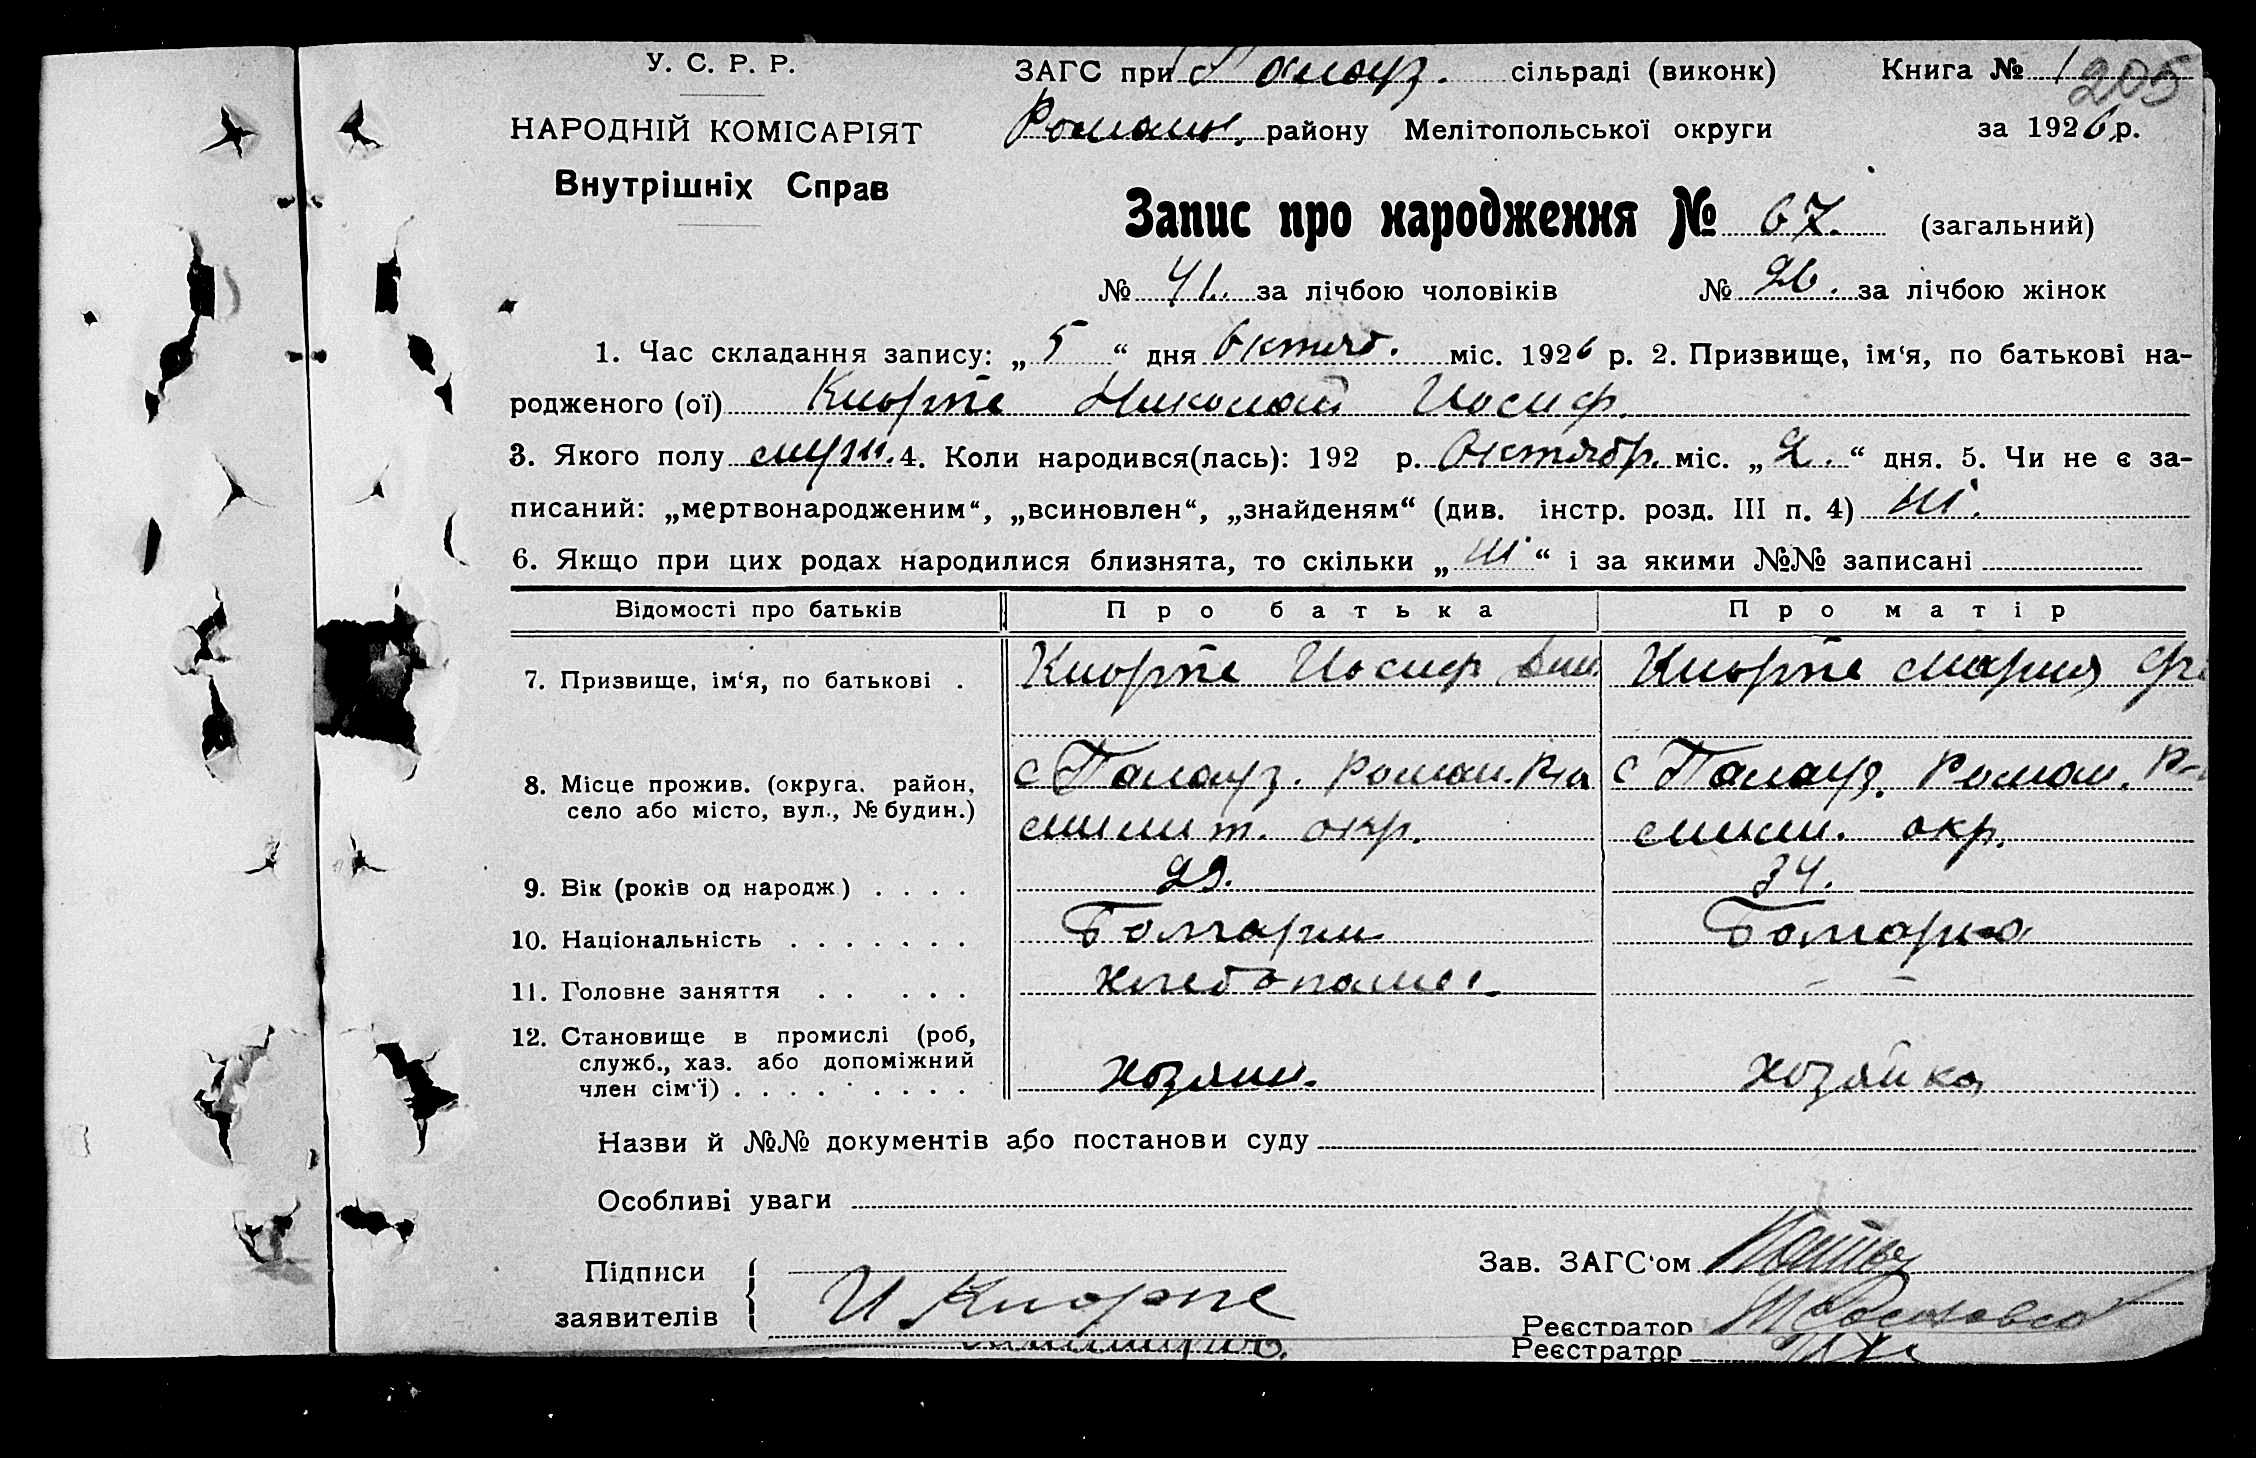 У. С. Р. Р.
НАРОДНІЙ КОМІСАРІЯТ
Внутрішніх Справ
ЗАГС при с Палауз. сільраді (виконк) Книга № 1 205
Романов. району Мелітопольської округи за 1926 р.
Запис про народження № 67. (загальний)
№ 41. за лічбою чоловіків № 26. за лічбою жінок
1. Час складання запису: „ 5 “ дня Октяб. міс. 1926 р. 2. Призвище, ім‘я, по батькові на-
родженого (ої) Кюрпе Николай Иосиф.
3. Якого полу муж. 4. Коли народився(лась): 192 р. Октябр. міс. „ 2. “ дня. 5. Чи не є за-
писаний: „мертвонародженим“, „всиновлен“, „знайденям“ (див. інстр. розд. III п. 4) ні.
6. Якщо при цих родах народилися близнята, то скільки „ ні “ і за якими №№ записані
Відомості про батьків Про батька Про матір
7. Призвище, ім‘я, по батькові . Кюрпе Иосиф Кюрпе Мария
8. Місце прожив. (округа, район, с Палауз. Роман. р-на с Палауз. Роман.
село або місто, вул., № будин.) Мелит. окр. Мели. окр.
9. Вік (років од народж.) . . . . 29. 34.
10. Національність . . . . . . . Болгарин Болгарка
11. Головне заняття . . . . . Хлебопаш. — —
12. Становище в промислі (роб,
служб., хаз. або допоміжний Хозяин. Хозяйка
член сім‘ї) . . . . . . . .
Назви й №№ документів або постанови суду
Особливі уваги
Підписи Зав. ЗАГС‘ом
заявителів И Кюрпе
Реєстратор
Реєстратор